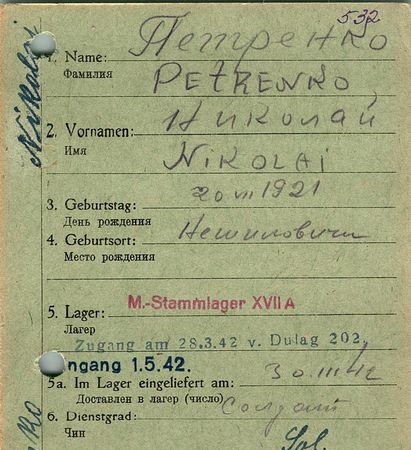 532
Петренко
1. Name:
Фамилия
PETRENKO
Николай
2. Vornamen:
Имя
NIKOLAI
20 VII 1921
3. Geburtstag:
День рождения
Нешиловичи
4. Geburtsort:
Место рождения
5. Lager: M.-Stammlager XVII A
Лагер
Zugang am 28.3.42 v. Dulag 202,
ngang 1.5.42.
5a. Im Lager eingeliefert am: 30.III.42
Доставлен в лагер (число)
6. Dienstgrad: Солдат
Чин
Sol.
Nikolai